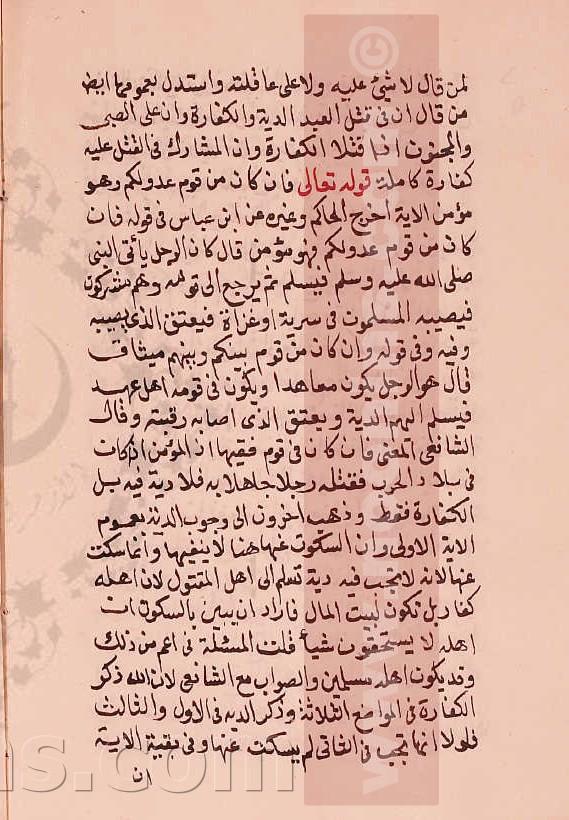 لمن قال لا شئ عليه ولا على عاقلته واستدل بعمومها ايضا
من قال ان فى قتل العبد الدية والكفارة وان على الصبى
والمجنون اذا قتلا الكفارة وان المشارك فى القتل عليه
كفارة كاملة قوله تعالى فان كان من قوم عدو لكم وهو
مؤمن الاية اخرج الحاكم وغيره عن ابن عباس فى قوله فان
كان من قوم عدو لكم فهو مؤمن قال كان الرجل يأتى النبى
صلى الله عليه وسلم فيسلم ثم يرجع الى قومه وهم مشركون
فيصيبه المسلمون فى سرية او غزاة فيعتق الذى يصيبه
وفيه وفى قوله وان كان من قوم بينكم وبينهم ميثاق
قال هو الرجل يكون معاهدا ويكون فى قومه اهل عهد
فيسلم اليهم الدية ويعتق الذى اصابه رقبة وقال
الشافعى المعنى فان كان فى قوم ففيها ان المؤمن اذا كان
فى بلاد الحرب فقتله رجل جاهلا به فلا دية فيه بل
الكفارة فقط وذهب اخرون الى وجوب الدية بعموم
الاية الاولى وان السكوت عنها هنا لا ينفيها وانما سكت
عنها لانه لا تجب فيه دية تسلم الى اهل المقتول لان اهله
كفار بل تكون لبيت المال فاراد ان يبين بالسكوت ان
اهله لا يستحقون شيأ قلت المسئلة فى اعم من ذلك
وقد يكون اهله مسلمين والصواب مع الشافعى لان الله ذكر
الكفارة فى المواضع الثلاثة وذكر الدية فى الاول والثالث
فلولا انها تجب فى الثانى لم يسكت عنها وفى بقية الاية
ان